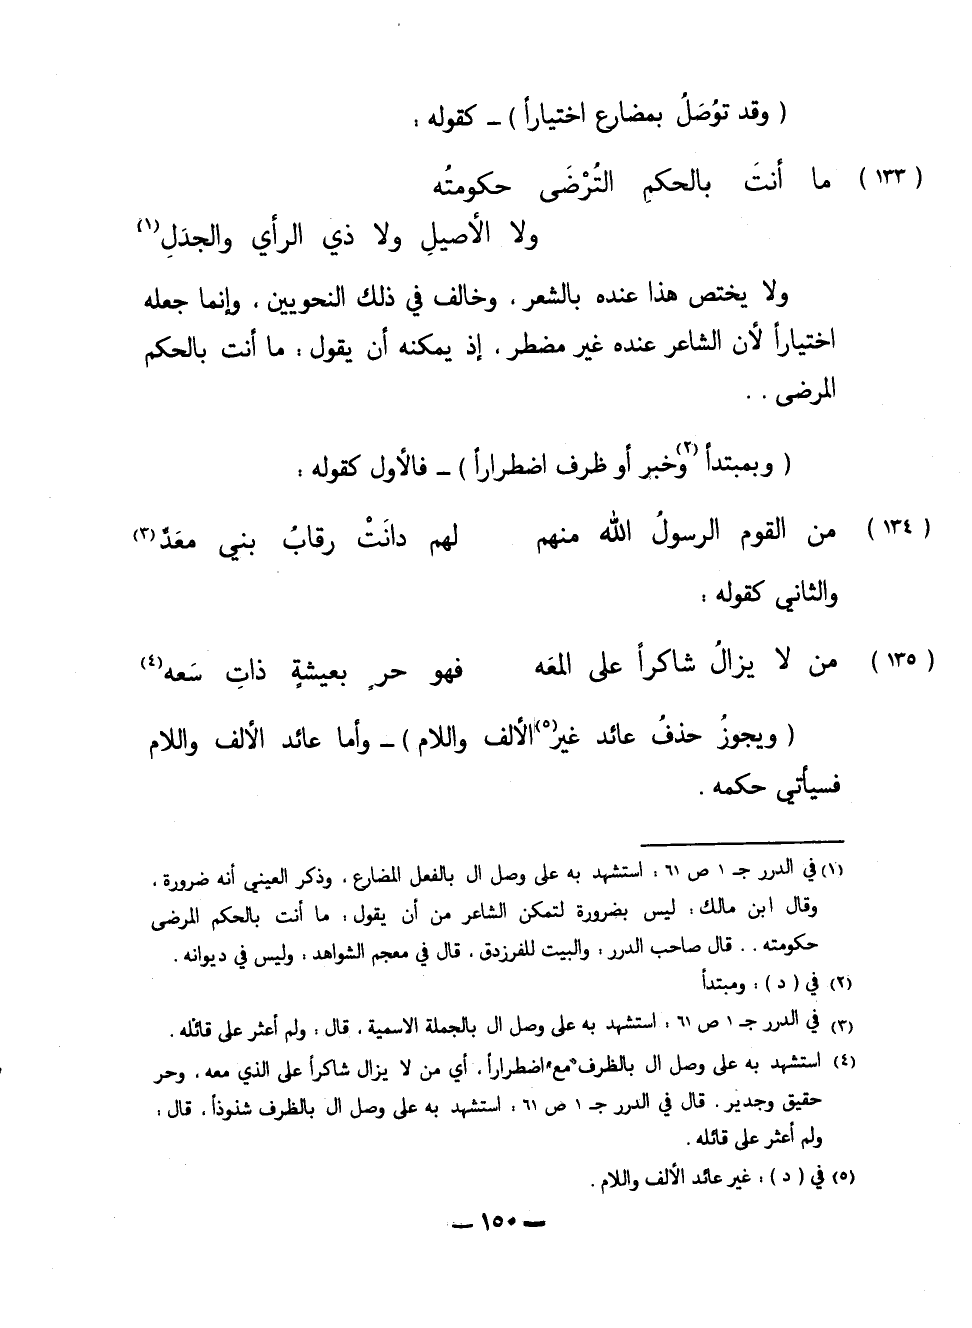 ( وقد توُصَلُ بمضارع اختياراً ) ــ كقوله :
( ١٣٣ ) ما أنتَ بالحكمِ التُرْضَى حكومتُه
ولا الأصيلِ ولا ذي الرأي والجدَلِ(١)
ولا يختص هذا عنده بالشعر ، وخالف في ذلك النحويين ، وإنما جعله
اختياراً لأن الشاعر عنده غير مضطر ، إذ يمكنه أن يقول : ما أنت بالحكم
المرضى . .
( وبمبتدأ(٢) وخبر أو ظرف اضطراراً ) ــ فالأول كقوله :
( ١٣٤ ) من القوم الرسولُ الله منهم لهم دانَتْ رقابُ بني معَدٌ(٣)
والثاني كقوله :
( ١٣٥ ) من لا يزالُ شاكراً على المعَه فهو حرٍ بعيشةٍ ذاتِ سَعه(٤)
( ويجوزُ حذفُ عائد غيرِ(٥) الألف واللام ) ــ وأما عائد الألف واللام
فسيأتي حكمه .
(١) في الدرر جـ ١ ص ٦١ : استشهد به على وصل ال بالفعل المضارع ، وذكر العيني أنه ضرورة ،
وقال ابن مالك : ليس بضرورة لتمكن الشاعر من أن يقول : ما أنت بالحكم المرضى
حكومته . . قال صاحب الدرر : والبيت للفرزدق ، قال في معجم الشواهد : وليس في ديوانه .
(٢) في ( د ) : ومبتدأ
(٣) في الدرر جـ ١ ص ٦١ : استشهد به على وصل ال بالجملة الاسمية ، قال : ولم أعثر على قائله .
(٤) استشهد به على وصل ال بالظرف «مع» اضطراراً ، أي من لا يزال شاكراً على الذي معه ، وحر
حقيق وجدير . قال في الدرر جـ ١ ص ٦١ : استشهد به على وصل ال بالظرف شذوذاً ، قال :
ولم أعثر على قائله .
(٥) في ( د ) : غير عائد الألف واللام .
ــ ١٥٠ ــ